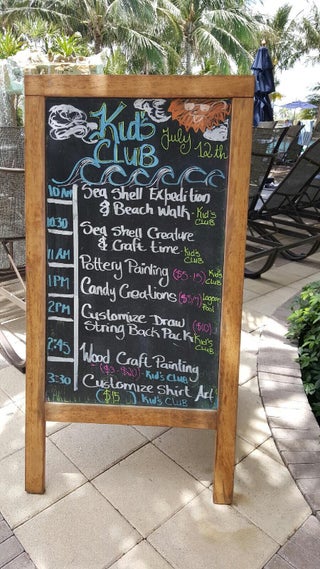 Kid's
CLUB
July 12th
10 AM Sea Shell Expedition
& Beach Walk - Kid's CLUB
10:30 Sea Shell Creature
& Craft time - Kid's CLUB
11 AM Pottery Painting ($5-15) Kid's CLUB
1 PM Candy Creations ($5/7) Lagoon Pool
2 PM Customize Draw ($10)
String Back Pack Kid's CLUB
2:45 Wood Craft Painting
($3-$20) - Kid's CLUB
3:30 Customize Shirt Art
($15) Kid's CLUB